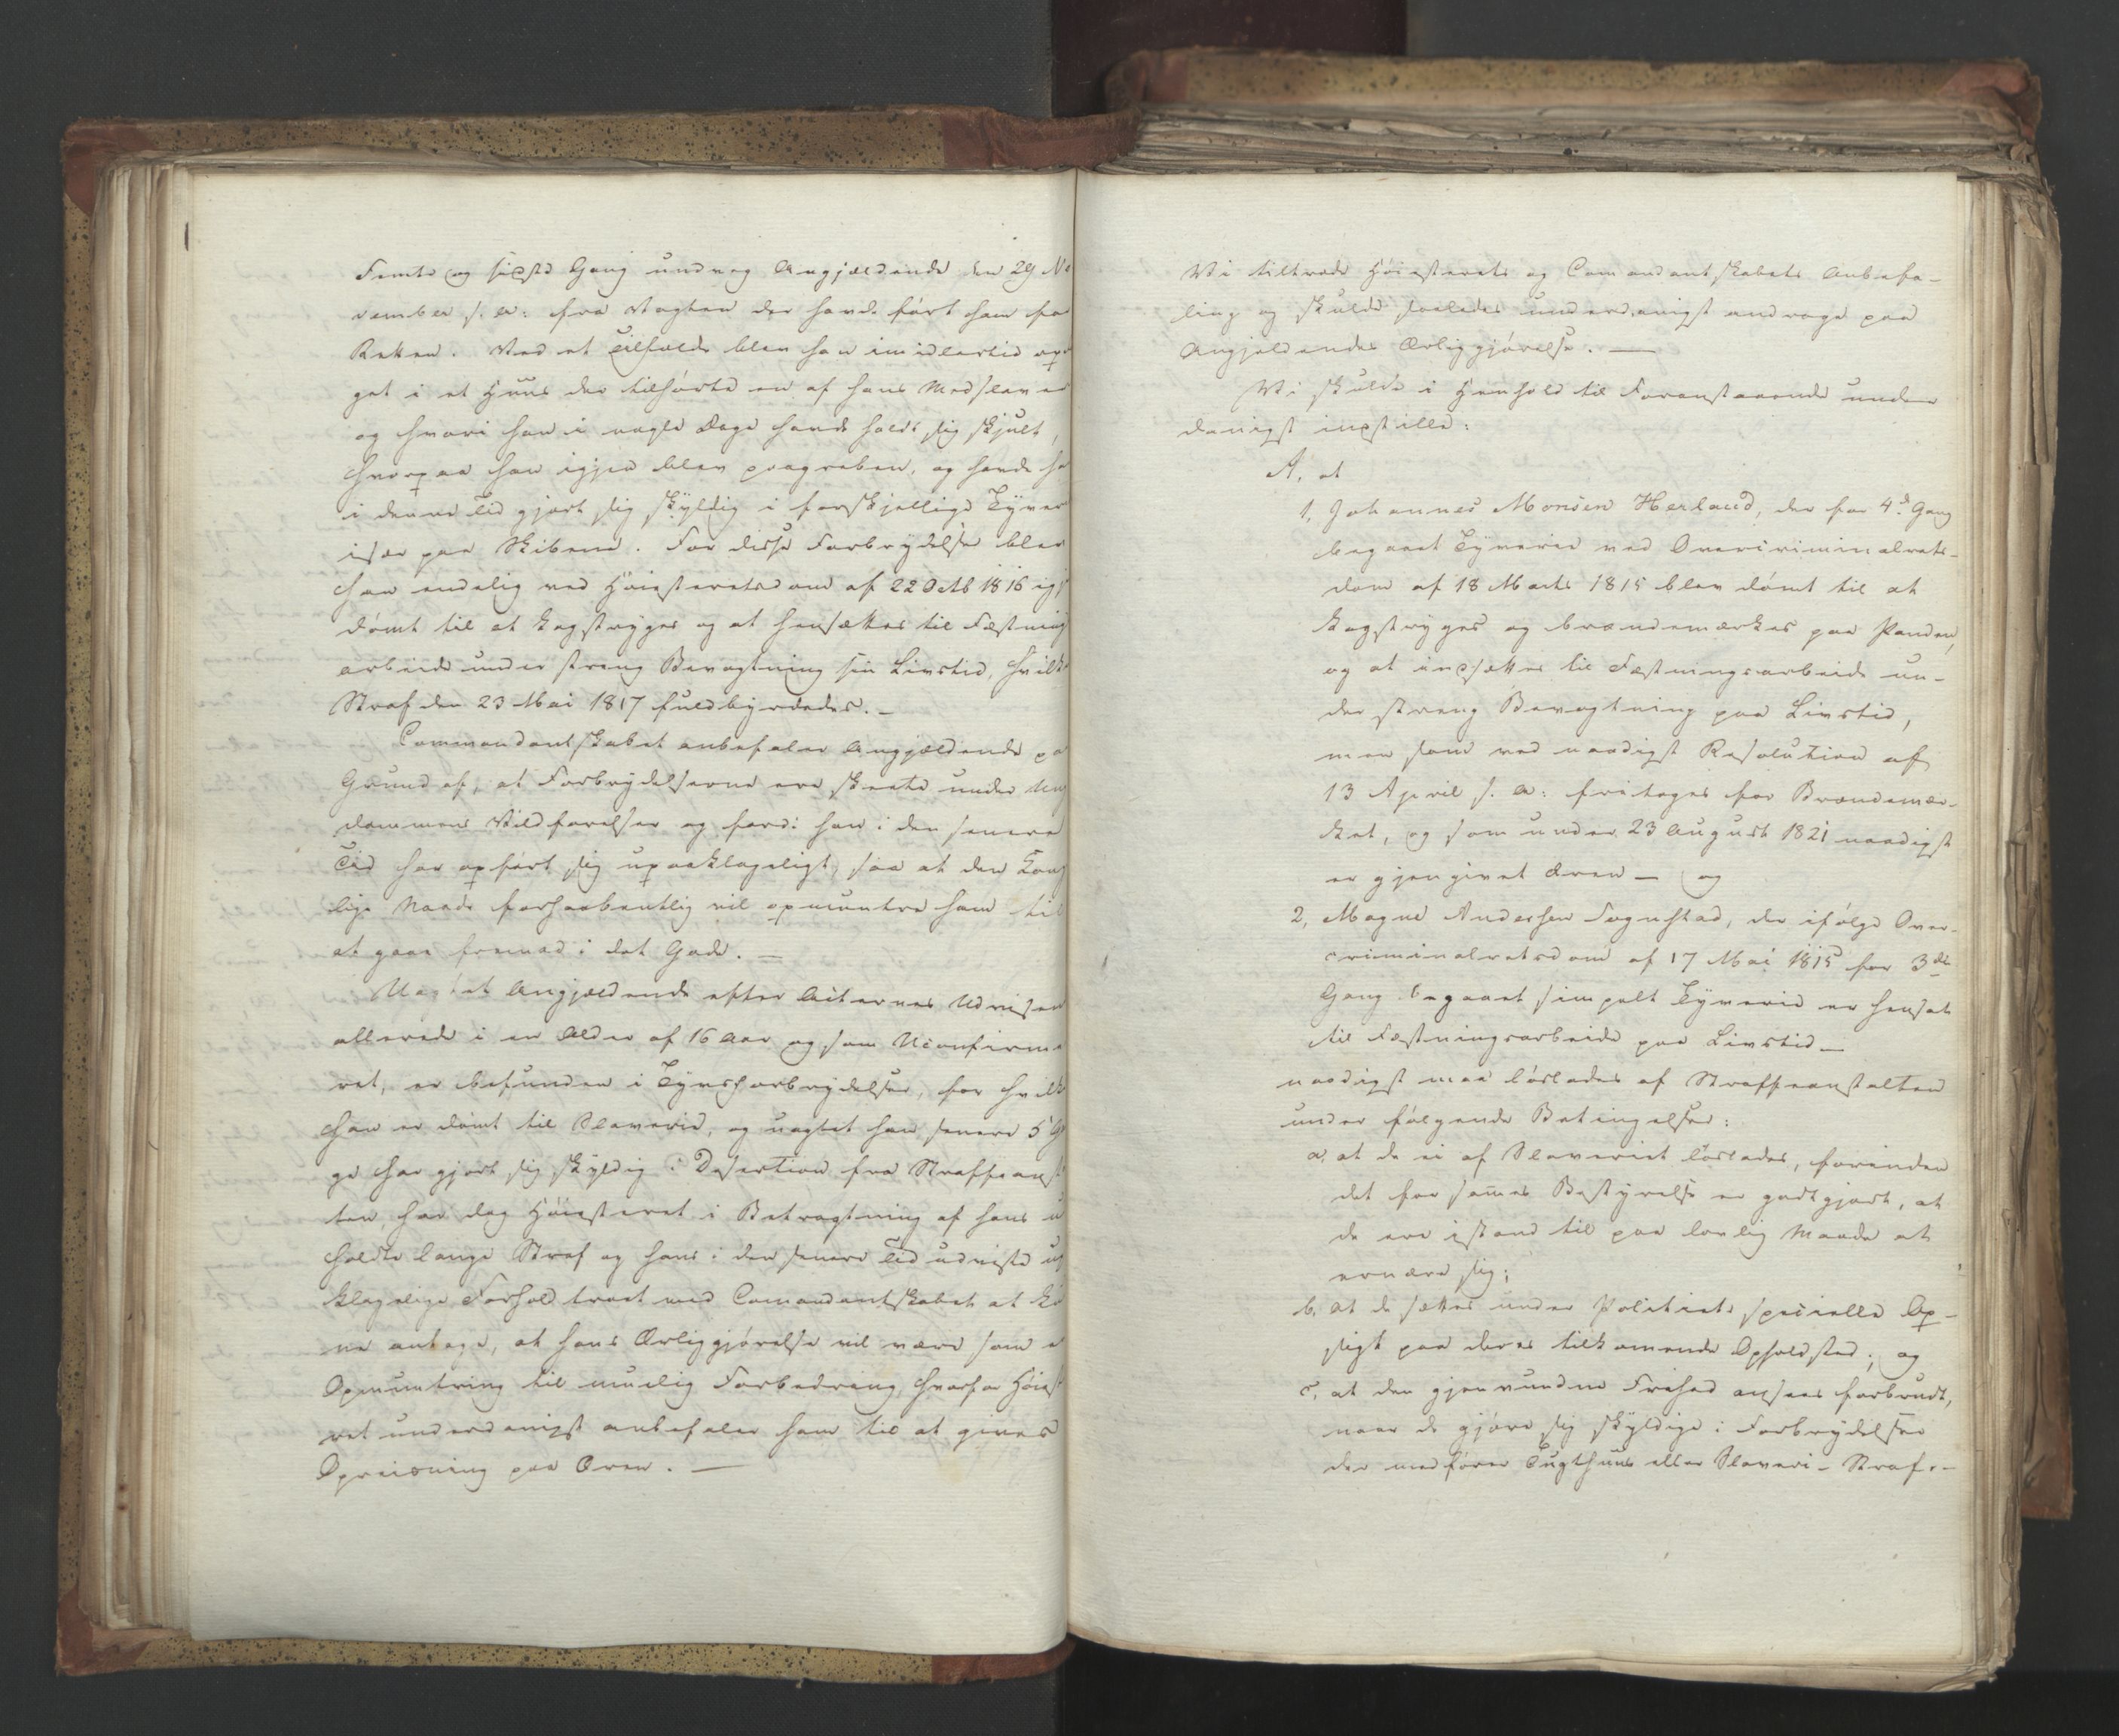 Femte og sidste Gang undveg Angjældende den 29 No
vember s. A: fra Vagten der havde ført ham fra
Retten. Ved et Tilfælde blev han imidlertid op
get i et Huus der tilhørte en af hans Medslaver
og hvori han i nogle Dage havde holdt sig skjult,
hvorpaa han igjen blev paagreben, og havde ha
i denne Tid gjort sig skyldig i forskjellige Tyver
især paa Skibene. For disse Forbrydelser blev
han endelig ved Höiesteretsdom af 22 Octb 1816 igj
dömt til at kagstryges og at hensættes til Fæstnings
arbeide under streng Bevogtning sin Livstid, hvilke
Straf den 23 Mai 1817 fuldbyrdedes. –
Commandantskabet anbefaler Angjældende pa
Grund af, at Forbrydelserne ere skeete under Ung
dommens Vildfarelser og fordi han i den senere
Tid har opført sig upaaklageligt, saa at den Kong
lige Naade forhaabentlig vil opmuntre ham til
at gaae fremad i det Gode. –
Uagtet Angjældende efter Acternes Udvisen
allerede i en Alder af 16 Aar og som Uconfirme
ret, er befunden i Tyvsforbrydelser, for hvilke
han er dömt til Slaverie, og uagtet han senere 5 Ga
ge har gjort sig skyldig i Desertion fra Straffeanst
ten, har dog Höiesteret i Betragtning af hans u
holdte lange Straf og hans i den senere Tid udviste up
klagelige Forhold troet med Comandantskabet at ku
ne antage, at hans Ærliggjörelse vil være som e
Opmuntring til muelig Forbedring, hvorfor Höieste
ret underdanigst anbefaler ham til at gives
Opreisning paa Æren. –
Vi tiltræde Höiesterets og Comandantskabets Anbefa-
ling og skulde saaledes underdanigst andrage paa
Angjeldendes Ærliggjörelse. –
Vi skulde i Henhold til Foranstaaende under
danigst indstille:
A, at
1, Johannes Monsen Herland, der for 4de Gang
begaaet Tyverie ved Overcriminalrets-
dom af 18 Marts 1815 blev dömt til at
kagstryges og brændemærkes paa Panden,
og at indsættes til Fæstningsarbeide un-
der streng Bevogtning paa Livstid,
men som ved naadigst Resolution af
13 April s. A: fritoges for Brændemær-
ket, og som under 23 August 1821 naadigst
er gjengivet Æren – og
2, Magne Andersen Fognstad, der ifølge Over-
criminalretsdom af 17 Mai 1815 for 3die
Gang begaaet simpelt Tyverie er hensat
til Fæstningsarbeide paa Livstid –
naadigst maa löslades af Straffeanstalten
under følgende Betingelser:
a. at de ei af Slaveriet löslades, forinden
det for sammes Bestyrelse er godtgjort, at
de ere istand til paa lovlig Maade at
ernære sig;
b. at de sættes under Politiets specielle Op-
sigt paa deres tilkomende Opholdsted; og
c, at den gjenvundne Frihed ansees forbrudt,
naar de gjöre sig skyldige i Forbrydelser
der medfører Tugthuus eller Slaveri-Straf. –